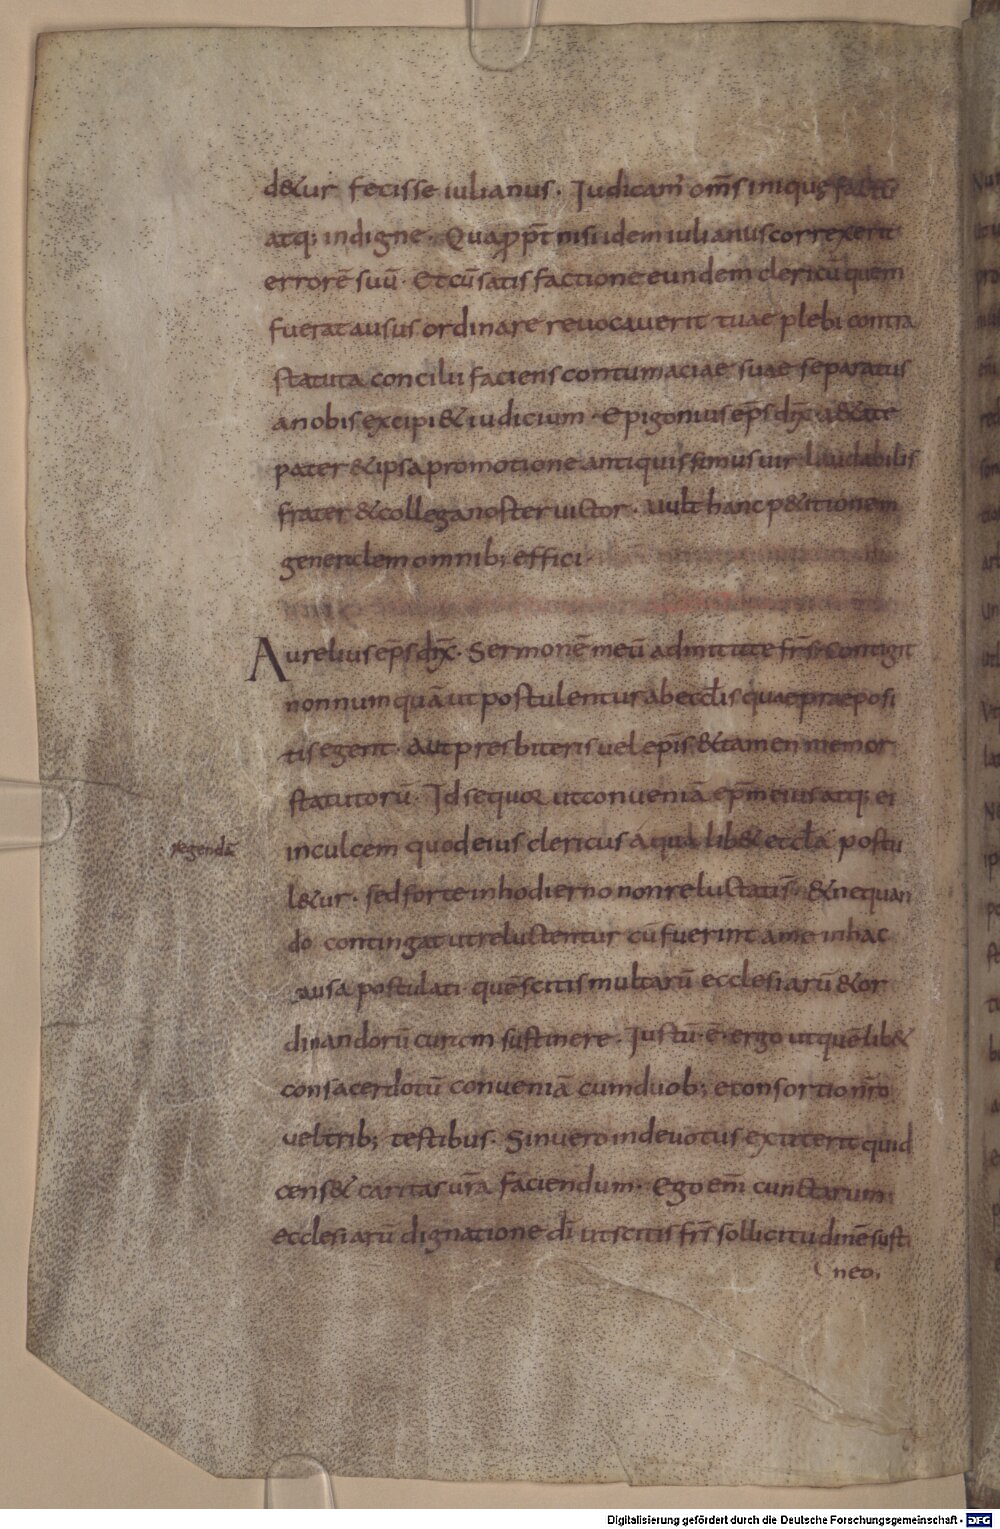 det&ur fecisse iulianus. Judicam̅ om̅s iniquę factū
atq; indigne. Quap̱p̅t nisi idem iulianus correxerit
errorē suū. Et cū satisfactione eundem clericū quem
fuerat ausus ordinare reuocauerit tuae plebi contra
statuta concilii faciens contumaciae suae separatus
a nobis excipi& iudicium. Epigonius ep̅s dix̅. a&ate
pater & ipsa promotione antiquissimus uir laudabilis
frater & collega noster uictor. uult hanc p&itionem
generalem omnib; effici.
Aurelius ep̅s dix̅. Sermonē meū admittite fr̅s. Contigit
nonnumquā ut postulentur ab eccl̅is quae praeposi
tis egent. Aut presbiteris uel ep̅is. & tamen memor
statutorū. Id sequor ut conueniā ep̅m eius atq; ei
inculcem quod eius clericus a qua lib& eccl̅a postu
l&ur. sed forte in hodierno non reluctatis̅. & ne quan
do contingat ut reluctentur cū fuerint a me in hac
causa postulati. quē scitis multarū ecclesiarū & or
dinandorū curam sustinere. Justū. ē. ergo ut quēlib&
consacerdotū conueniā cum duob; e consortio nr̅o
uel trib; testibus. Sin uero indeuotus extiterit quid
cens& caritas ur̅a faciendum. Ego em̅ cunctarum
ecclesiarū dignatione dī ut scitis fr̅s sollicitudinē susti
neo.
regendā